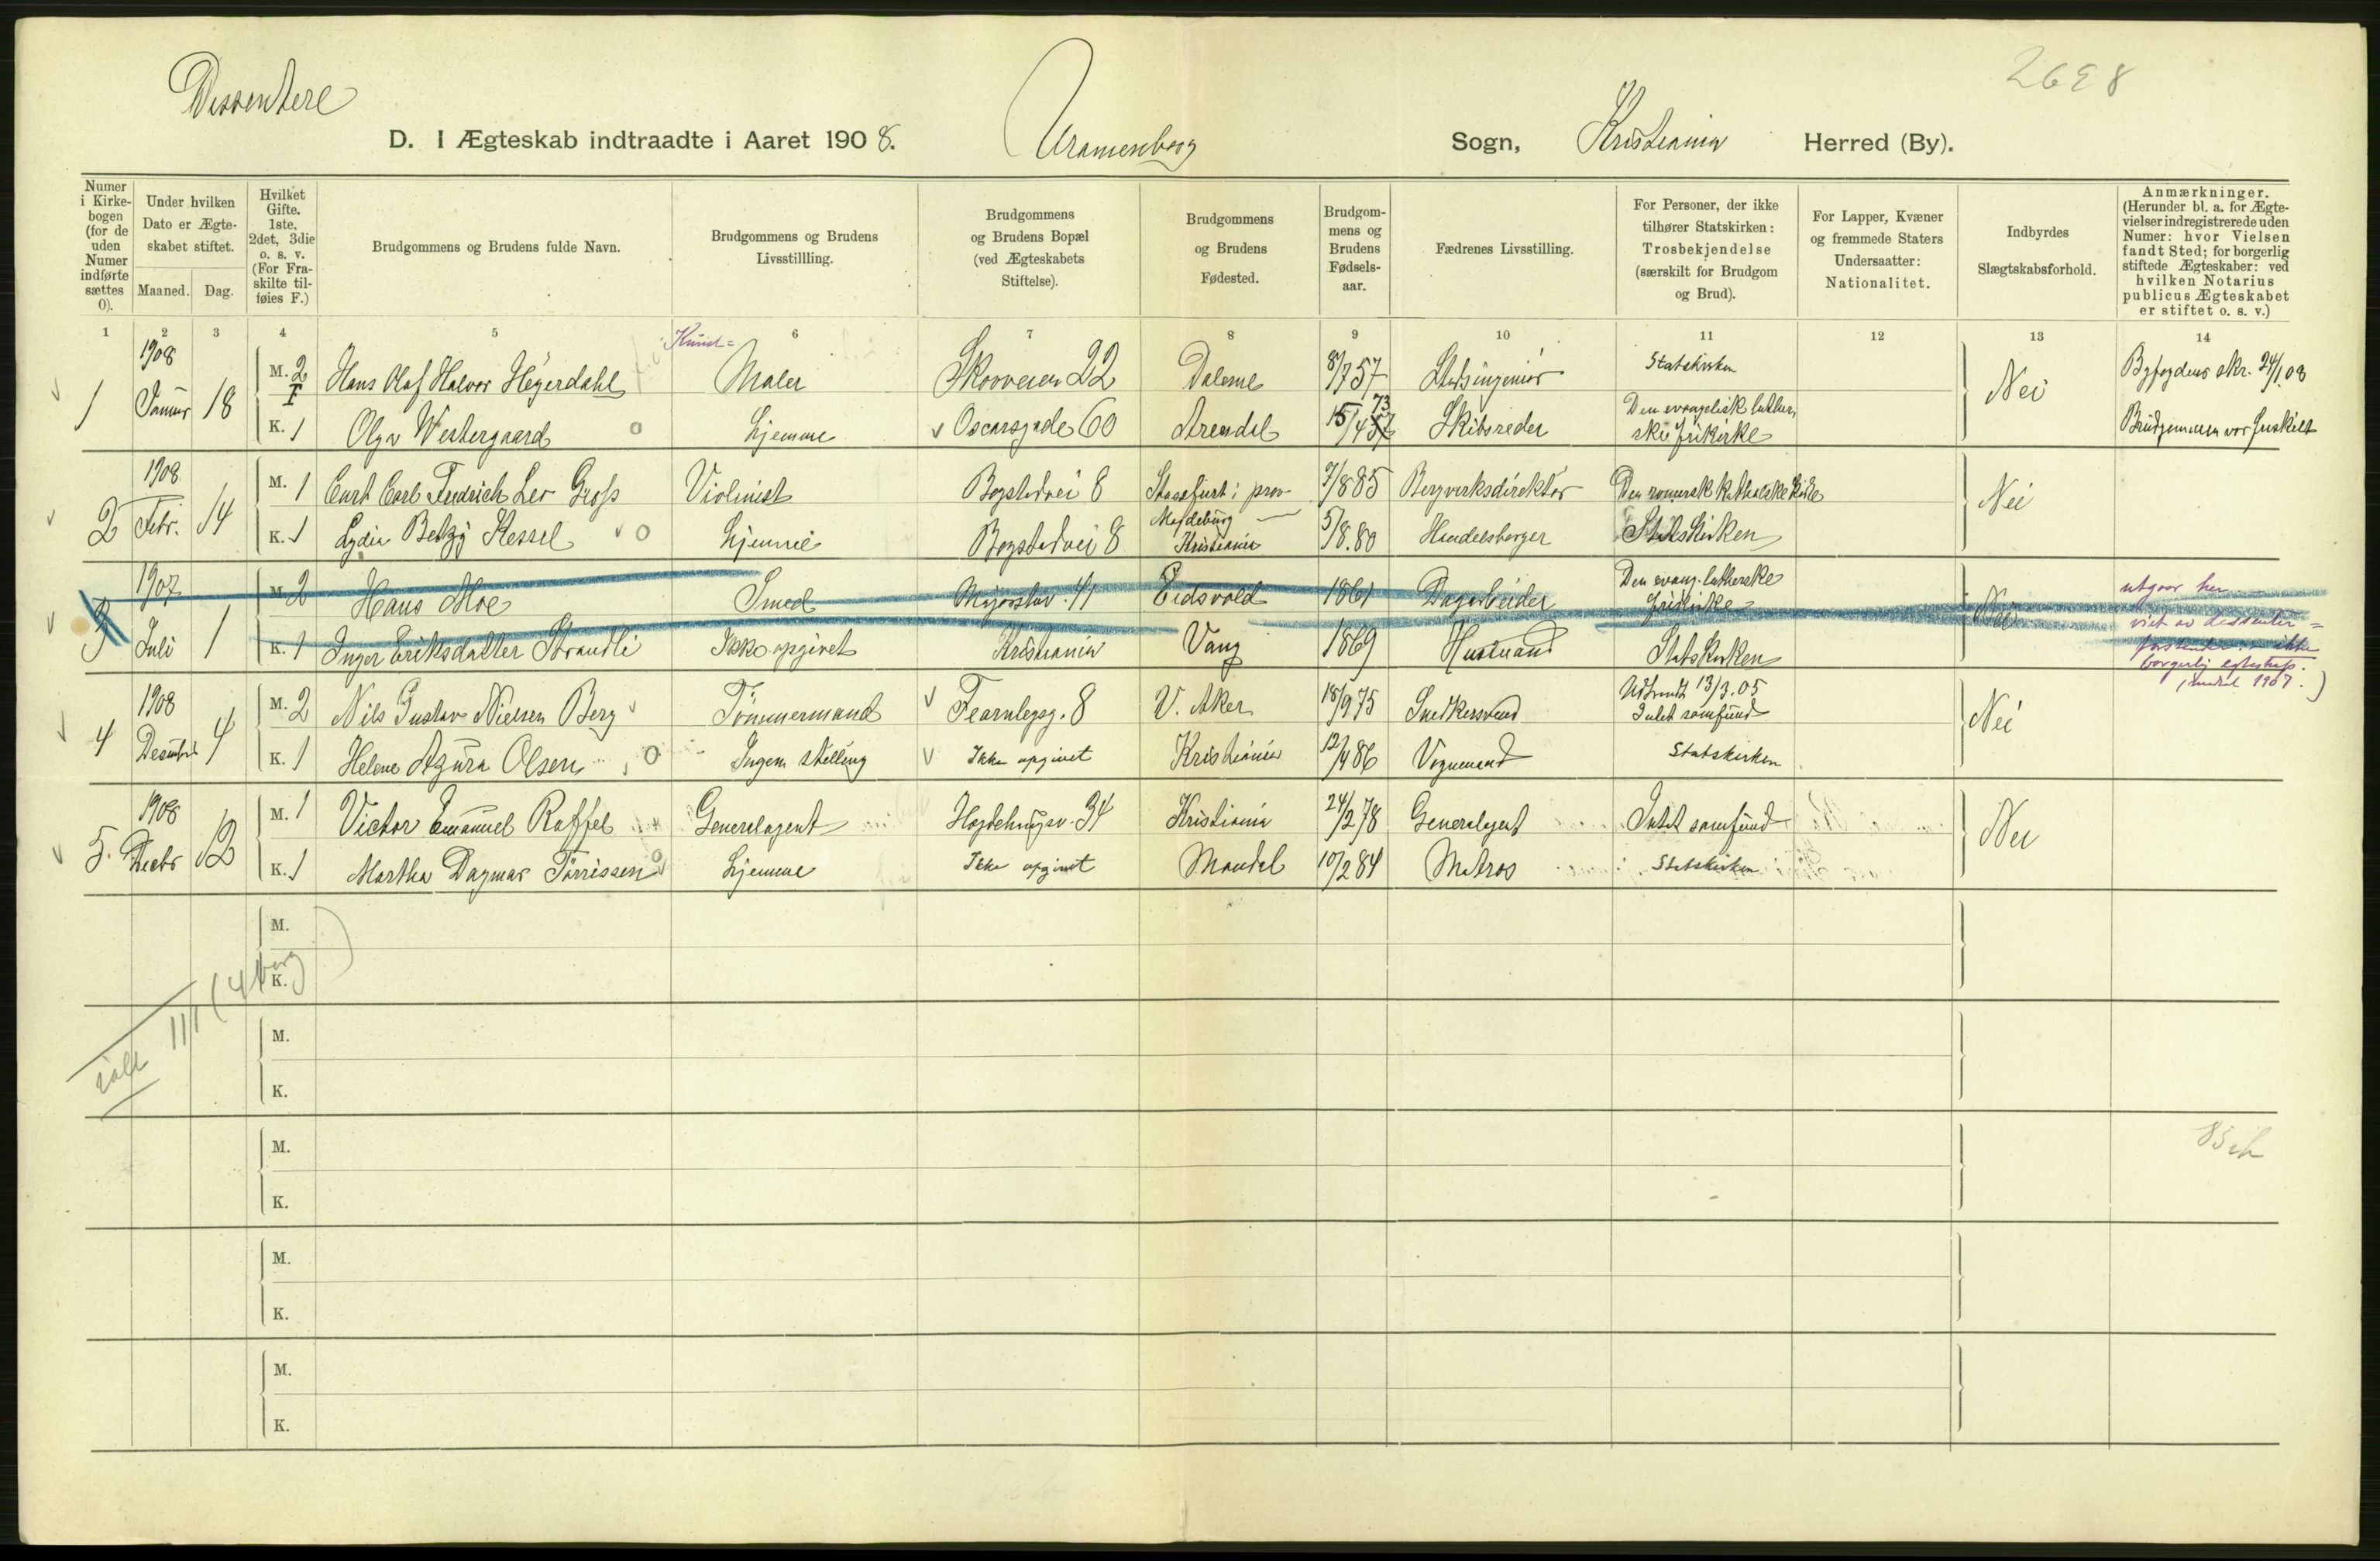 2698
Dissentere
D. I Ægteskab indtraadte i Aaret 1908. Uranienborg Sogn, Kristiania Herred (By).
Numer i Kirkebogen (for de uden Numer indførte sættes 0).
Under hvilken Dato er Ægteskabet stiftet.
Maaned. Dag.
Hvilket Gifte. 1ste, 2det, 3die o. s. v. (For Fraskilte tilføies F.)
Brudgommens og Brudens fulde Navn.
Brudgommens og Brudens Livsstillling.
Brudgommens og Brudens Bopæl (ved Ægteskabets Stiftelse).
Brudgommens og Brudens Fødested.
Brudgommens og Brudens Fødselsaar.
Fædrenes Livsstilling.
For Personer, der ikke tilhører Statskirken: Trosbekjendelse (særskilt for Brudgom og Brud).
For Lapper, Kvæner og fremmede Staters Undersaatter: Nationalitet.
Indbyrdes Slægtskabsforhold.
Anmærkninger. (Herunder bl. a. for Ægtevielser indregistrerede uden Numer: hvor Vielsen fandt Sted; for borgerlig stiftede Ægteskaber: ved hvilken Notarius publicus Ægteskabet er stiftet o. s. v.)
1 2 3 4 5 6 7 8 9 10 11 12 13 14
1 1908 Januar 18 M. 2 F Hans Olaf Halvor Heyerdahl Kunst= Maler Skovveien 22 Dalerne 8/7 57 Statsingeniør Statskirken Nei Byfogdens skr. 24/1.08
K. 1 Olga Westergaard 0 Hjemme Oscarsgade 60 Arendal 15/4 73 Skibsreder Den evangelisk lutherske frikirke Brudgommen var fraskilt
2 1908 Febr. 14 M. 1 Curt Carl Fredrich Leo Gross Violinist Bogstadvei 8 Stassfurt i prov Magdeburg 7/8 85 Bergverksdirektør Den romersk katholske kirke Nei
K. 1 Lydia Betzy Kessel 0 Hjemme Bogstadvei 8 Kristiania 5/8.80 Handelsborger Statskirken
3 1907 Juli 1 M. 2 Hans Moe Smed Majorstuv. 41 Eidsvold 1861 Dagarbeider Den evang. lutherske frikirke Nei utgaar her
K. 1 Inger Eriksdatter Strandli Ikke opgivet Kristiania Vang 1869 Husmand Statskirken viet av dissenter=
ikke
borgerlig egteskap.
1907.)
4 1908 Desember 4 M. 2 Nils Gustav Nielsen Berg Tømmermand Fearnleysg. 8 V. Aker 18/9 75 Snedkersvend Udtraadt 13/3.05 Intet samfund Nei
K. 1 Helene Azora Olsen 0 Ingen stilling Ikke opgivet Kristiania 12/4 86 Vognmand Statskirken
5. 1908 Decbr 12 M. 1 Victor Emanuel Raffel Generalagent Hegdehaugsv. 34 Kristiania 24/2 78 Generalagent Intet samfund Nei
K. 1 Martha Dagmar Tørrissen 0 Hjemme Ikke opgivet Mandal 10/2 84 Matros Statskirken
M.
K.
M.
K.
M.
K.
M.
K.
M.
K.